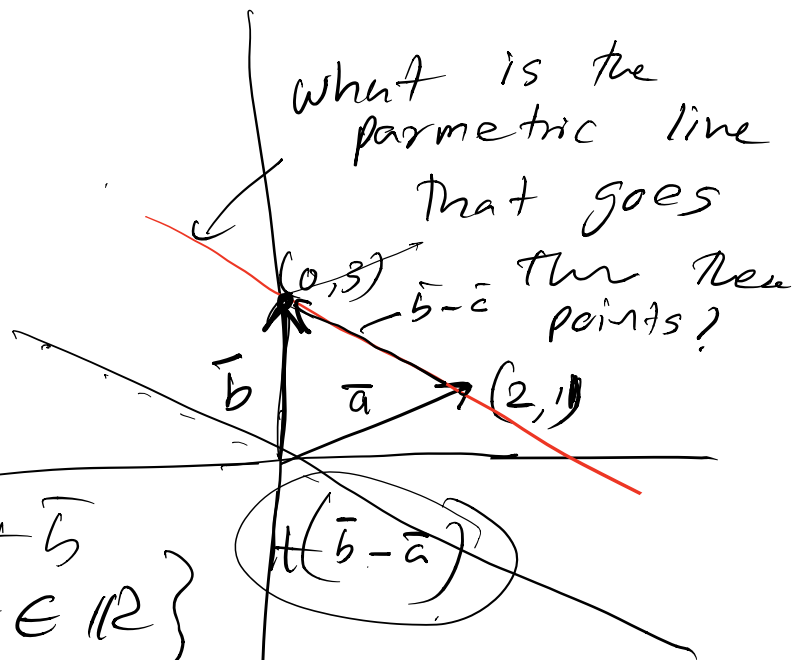 what is the
parmetric line
that goes
thru these
points?
(0,3)
b̄-c̄
b̄
ā
(2,1)
t(b̄-ā)
b̄
∈ ℝ}